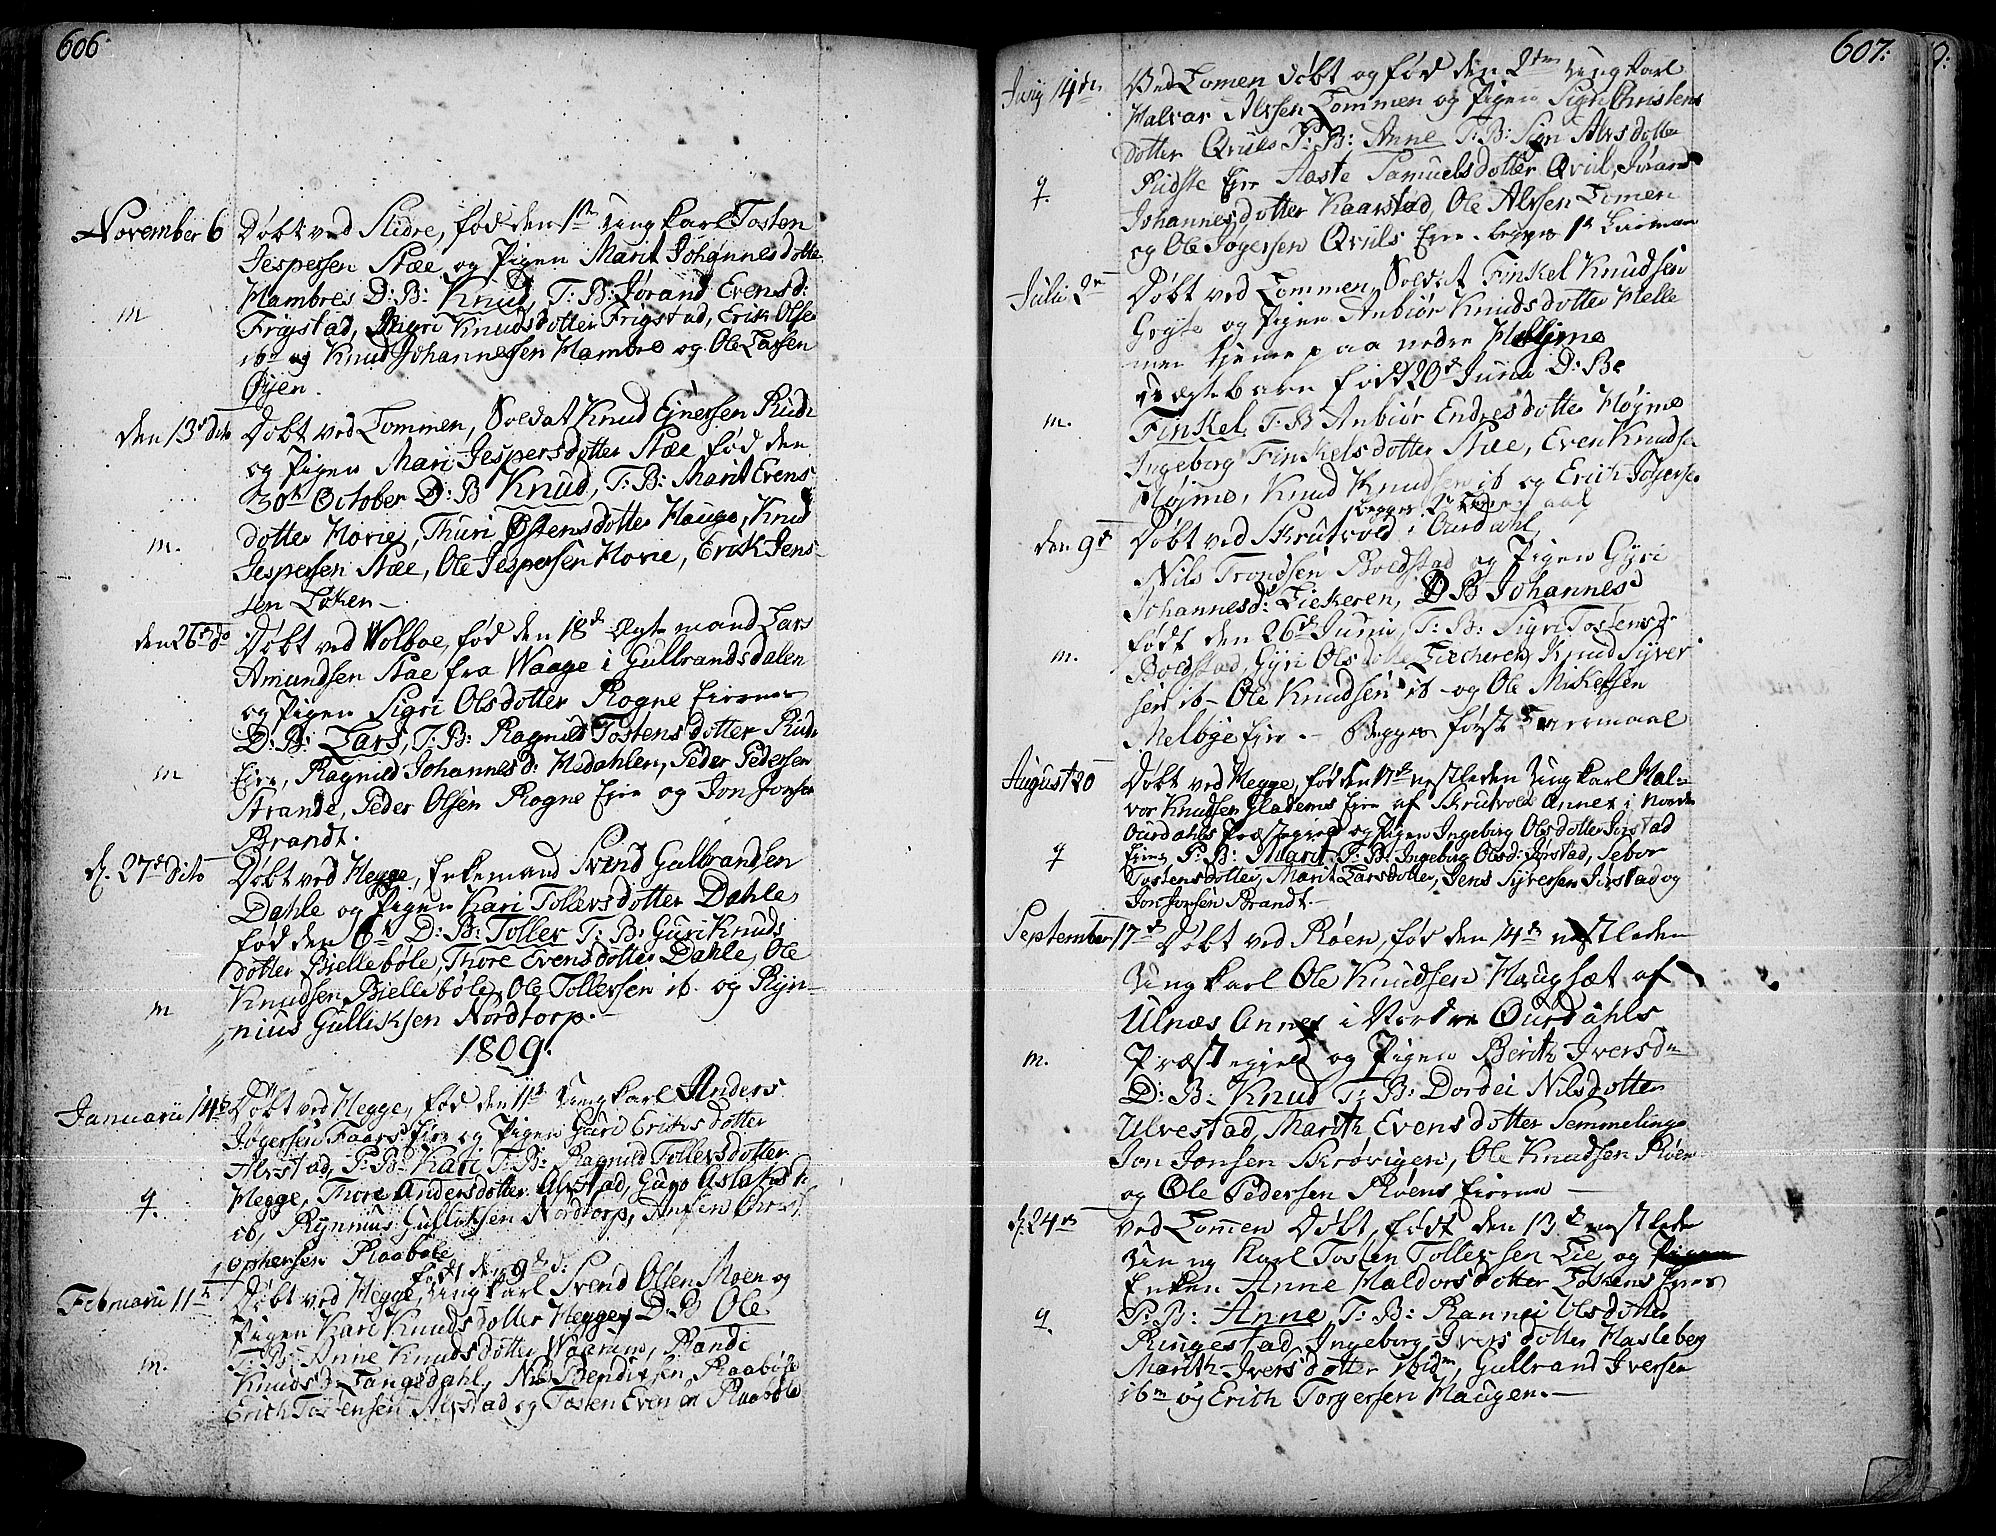 606
November 6 Døbt ved Slidre, fød den 1ste Ungkarl Tosten
Jespersen Stæe og Pigen Marit Johannesdotter
m Hambres D: B: Knud, T: B: Jørand Evensd:
Frigstad, Sigri Knudsdotter Frigstad, Erik Olsen
ib og Knud Johannessen Hambre og Ole Larsen
Øyen.
den 13de dito Døbt ved Lommen, Soldat Knud Ejnersen Rudi
og Pigen Mari Jespersdotter Stæe fød den
30te October D: B Knud, T: B: Marit Evens
m. dotter Horie, Thuri Østensdotter Hauge, Knud
Jespersen Stæe, Ole Jespersen Horie, Erik Jens-
sen Løken –
den 26de do Døbt ved Wolboe, fød den 18de Ægtemand Lars
Amundsen Stae fra Waage i Gulbrandsdalen
og Pigen Sigri Olsdotter Rogne Eierne
D: B: Lars, T: B: Ragnild Tostensdotter Rudi
m Eire, Ragnild Johannesd: Hedahlen, Peder Pedersen
Strande, Peder Olsen Rogne Eire og Jon Jonsen
Brandt.
d. 27de Dito Døbt ved Hegge, Enkemand Svend Gulbrandsen
Dahle og Pigen Kari Tollersdotter Dahle,
fød den 6te D: B: Toller T: B: Guri Knuds
dotter Bjellebøle, Thore Evensdotter Dahle, Ole
m Knudsen Bjellebøle, Ole Tollersen ib. og Ryn-
nius Gulliksen Nordtorp. –
1809.
Januarii 14de Døbt ved Hegge, fød den 11te Ungkarl Anders
Jøgersen Faars Eire og Pigen Guri Erichsdotter
Alvstad, P: B: Kari T: B: Ragnild Tollersdotter
q. Hegge, Thore Andersdotter Alvstad, Guro Aslaksd:
ib, Rynnius Gulliksen Nordtorp, Anfin Christ
ophersen Raabøle
født den 9de d:
Februarii 11te Døbt ved Hegge, Ungkarl Svend Olsen Moen og
Pigen Kari Knudsdotter Hegge, D: B Ole
m. T: B: Anne Knudsdotter Waarum, Randi
Knudsd: Langedahl, Nils Bendixsen Raabøle
Erich Tostensen Alvstad og Tosten Evensen Raabøle
607.
Junij 14de Ved Lomen døbt og fød den 2den Ungkarl
Halvar Alvsen Lommen og Pigen Sigri Christens
dotter Qvuls P: B: Anne T: B: Sigri Alvsdotter
q. Ridste Eire Aaste Samuelsdotter Qviil, Jørand
Johannesdotter Kaarstad, Ole Alvsen Lomen
og Ole Jøgersen Qvils Eire. begges 1ste Leiermaal
Julii 2den Døbt ved Lommen, Soldat Finkel Knudsen
Gryte og Pigen Anbiør Knudsdotter Helle
men tjener paa nedre Høyme
Uægtebarn født 20de Junii D: B:
m. Finkel, T: B Anbiør Endresdotter Høyme
Ingeborg Finkelsdotter Stæe, Even Knudsen
Høyme, Knud Knudsen ib og Erich Jøgersen
begges 2de Leiermaal
den 9de Døbt ved Skrutvold i Ourdahl
Nils Trondsen Boldstad og Pigen Gyri
Johannesd: Liekeren, D B Johannes
født den 26de Junii, T: B: Sigri Tostensd.
m. Boldstad, Gyri Olsdotter Liecheren Knud Syver
sen ib – Ole Knudsen ib – og Ole Mikelsen
Melbye Eire. – Begges første Leiermaal
August 20 Døbt ved Hegge, fød den 17de næstleden Ungkarl Hal-
vor Knudsen Gladems Eire af Skrutvold Annex i Nordre
Ourdahls Præstegield og Pigen Ingeborg Olsdotter Jorstad
q Eire, P: B: Marit, T: B: Ingeborg Olsd: Jørstad, Sebor
Tostensdotter, Marit Larsdotter, Jens Syversen Jorstad og
Jon Jonsen Brandt. –
September 17de Døbt ved Røen, før den 14de næstleden
Ungkarl Ole Knudsen Haugsæt af
Ulnæs Annex i Nordre Ourdahls
m. Præstegjeld og Pigen Berith Iversd:
D: B: Knud T: B: Dordei Nilsdotter
Ulvestad, Marith Evensdotter Semmelinge
Jon Jonsen Skrøvigen, Ole Knudsen Røen
og Ole Pedersen Røens Eierne –
d: 24de ved Lommen Døbt, født den 13de næstleden
Ungkarl Tosten Tollefsen Lie og Pigen
Enken Anne Haldorsdotter Løkens Eire
q. P: B: Anne, T: B: Rannei Olsdotter
Ringestad, Ingeborg Iversdotter Hasleberg
Marith Iversdotter ibidm, Gullrand Iversen
ibm og Erich Torgersen Haugen. –